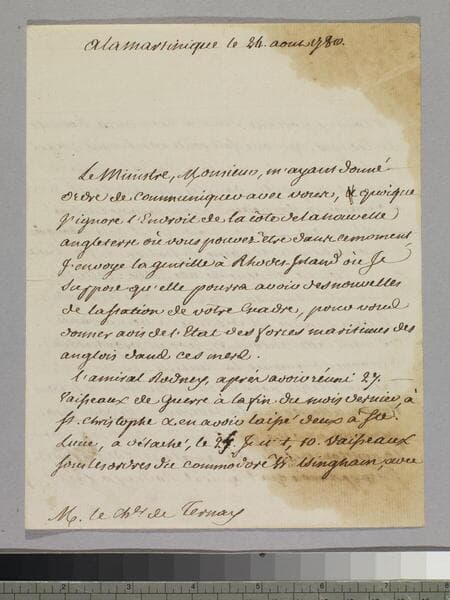 a la martinique le 24. aout 1780.
Le Ministre, Monsieur, m'ayant donné
ordre de communiquer avec vous, & quoique
J'ignore l'Endroit de la côte de la nouvelle
angleterre où vous pouvez être dans ce moment
J'envoye la gentille à Rhodes-Island où Je
suppose qu'elle pourra avoir des nouvelles
de la station de votre Escadre, pour vous
donner avis de l'Etat des forces maritimes des
anglois dans ces mers.
L'amiral Rodney, après avoir réuni 27.
Vaisseaux de Guerre à la fin du mois dernier, à
St. christophe & en avoir laissé deux à Ste.
Lucie, a détaché, le 10. Vaisseaux
sous les ordres du commodore Walsingham, avec
M. le Chr. de Ternay